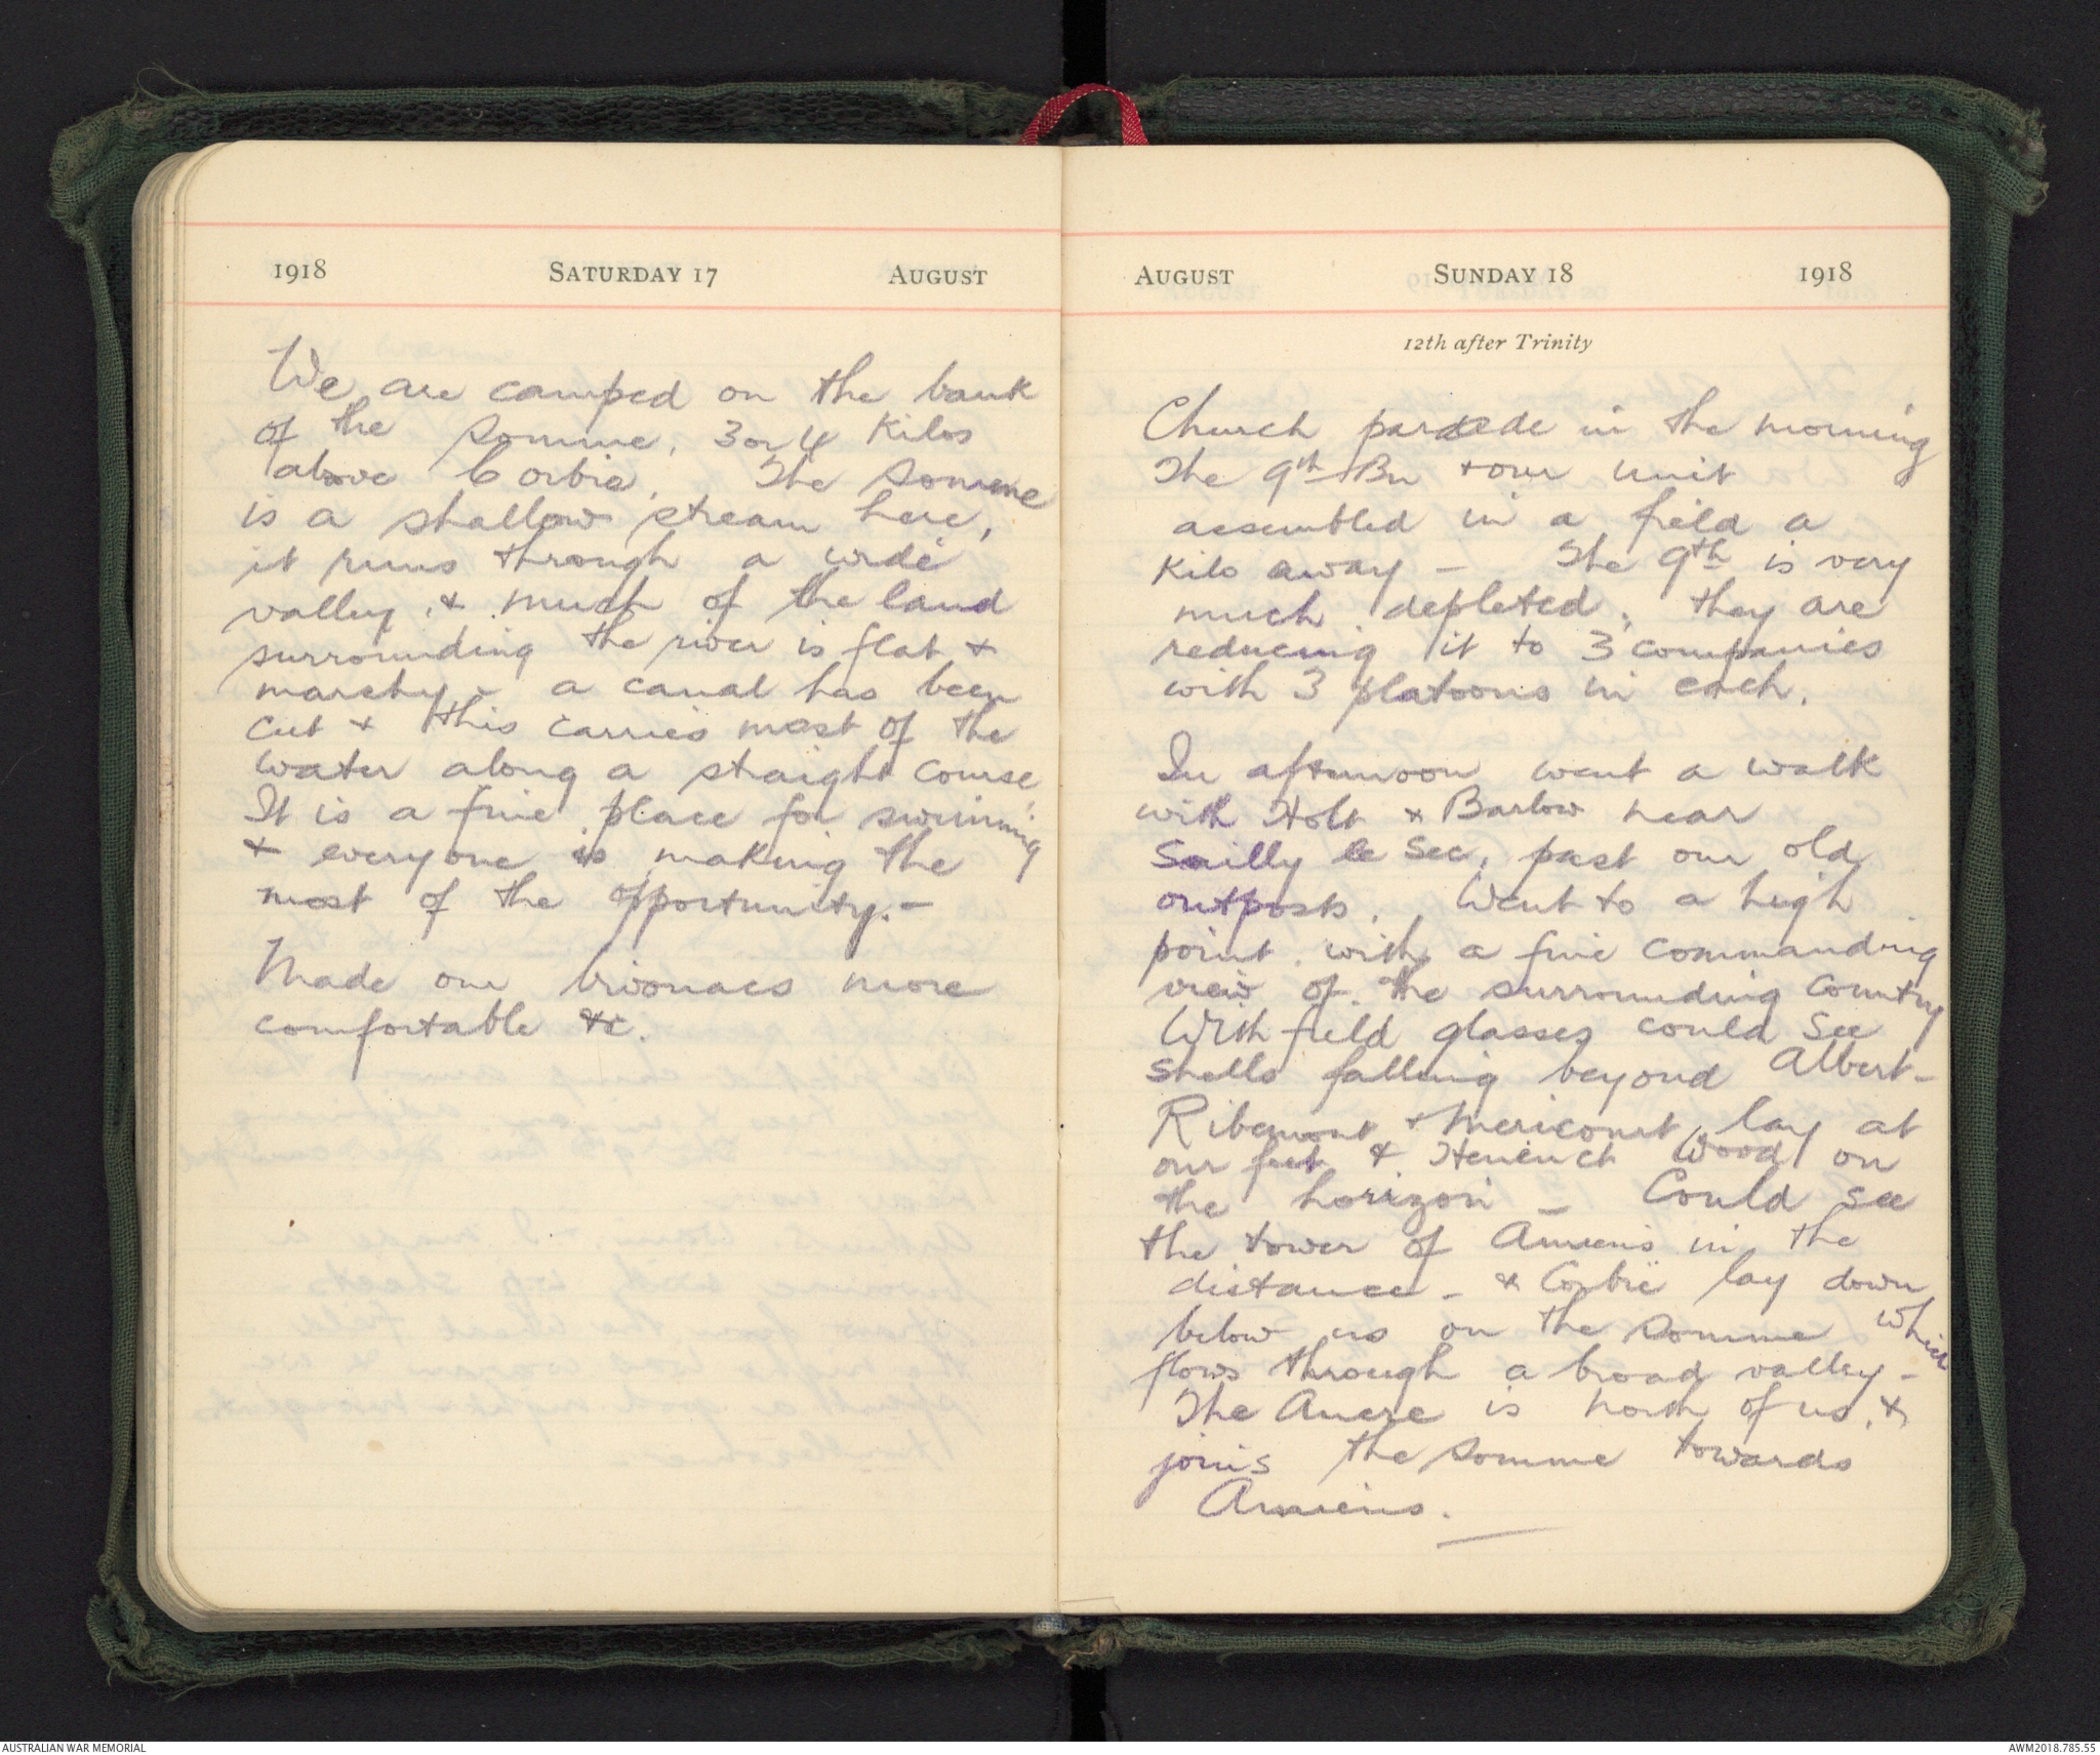 1918 SATURDAY 17 AUGUST
We are camped on the bank
of the Somme, 3 or 4 Kilos
above Corbie. The Somme
is a shallow stream here,
it runs through a wide
valley, & much of the land
surrounding the river is flat &
marshy - a canal has been
cut & this carries most of the
water along a straight course.
It is a fine place for swimming
& everyone is making the
most of the opportunity. -
Made our bivouacs more
comfortable &c.
AUGUST SUNDAY 18 1918
12th after Trinity
Church parade in the morning
The 9th Bn & our unit
assembled in a field a
Kilo away - The 9th is very
much depleted, they are
reducing it to 3 companies
with 3 platoons in each.
In afternoon went a walk
with Holt & Barlow near
Sailly le Sec, past our old
outposts. Went to a high
point with a fine commanding
view of the surrounding Country
With field glasses could see
shells falling beyond Albert -
Ribemont & Mericourt lay at
our feet & Wood on
the horizon - Could see
the tower of Amiens in the
distance - & Corbie lay down
below us on the Somme which
flows through a broad valley -
The Ancre is north of us, &
joins the Somme towards
Amiens.
AUSTRALIAN WAR MEMORIAL
AWM2018.785.55